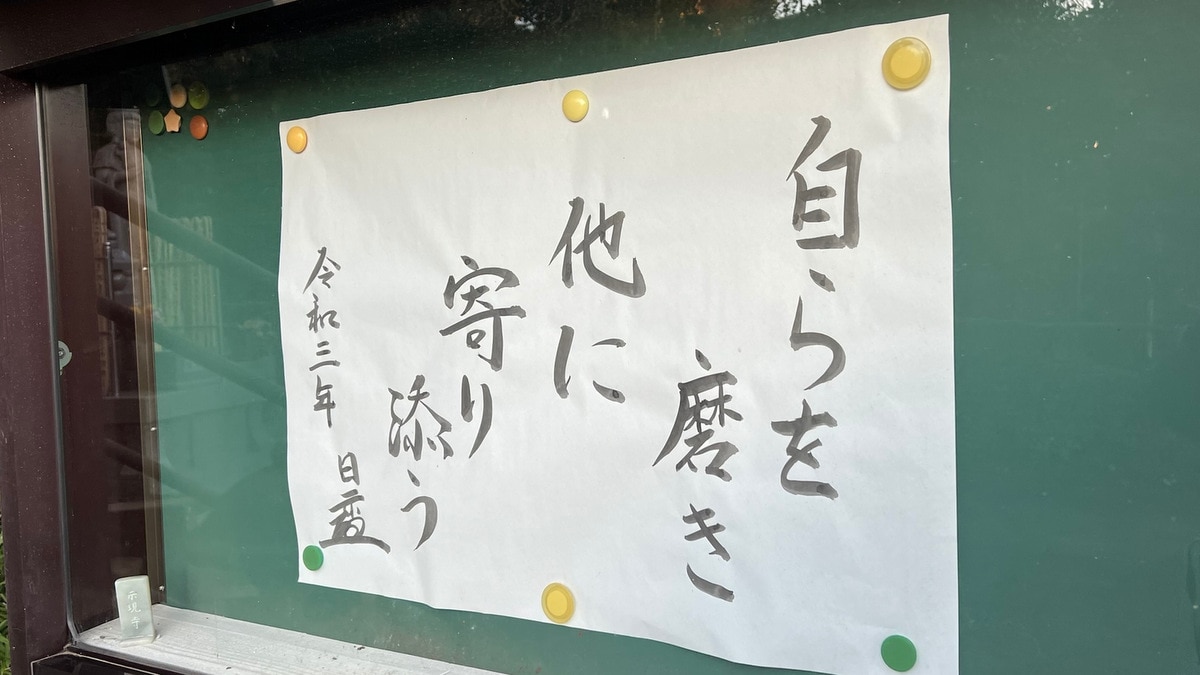 自らを
磨き
他に
寄り
添う
令和三年
示現寺